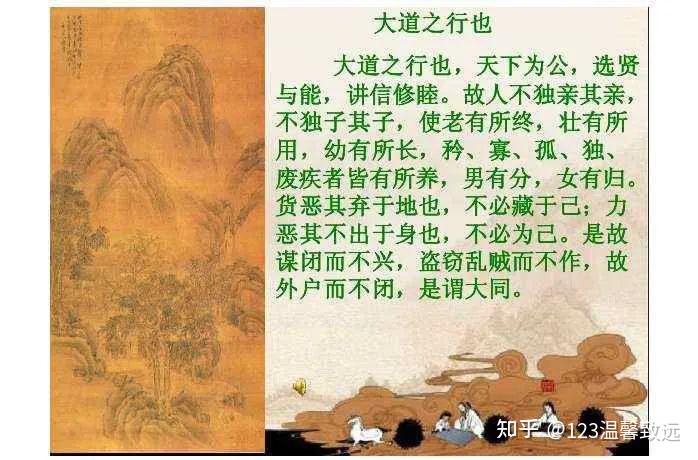 大道之行也
大道之行也，天下为公，选贤
与能，讲信修睦。故人不独亲其亲，
不独子其子，使老有所终，壮有所
用，幼有所长，矜、寡、孤、独、
废疾者皆有所养，男有分，女有归。
货恶其弃于地也，不必藏于己；力
恶其不出于身也，不必为己。是故
谋闭而不兴，盗窃乱贼而不作，故
外户而不闭，是谓大同。
知乎 @123温馨致远